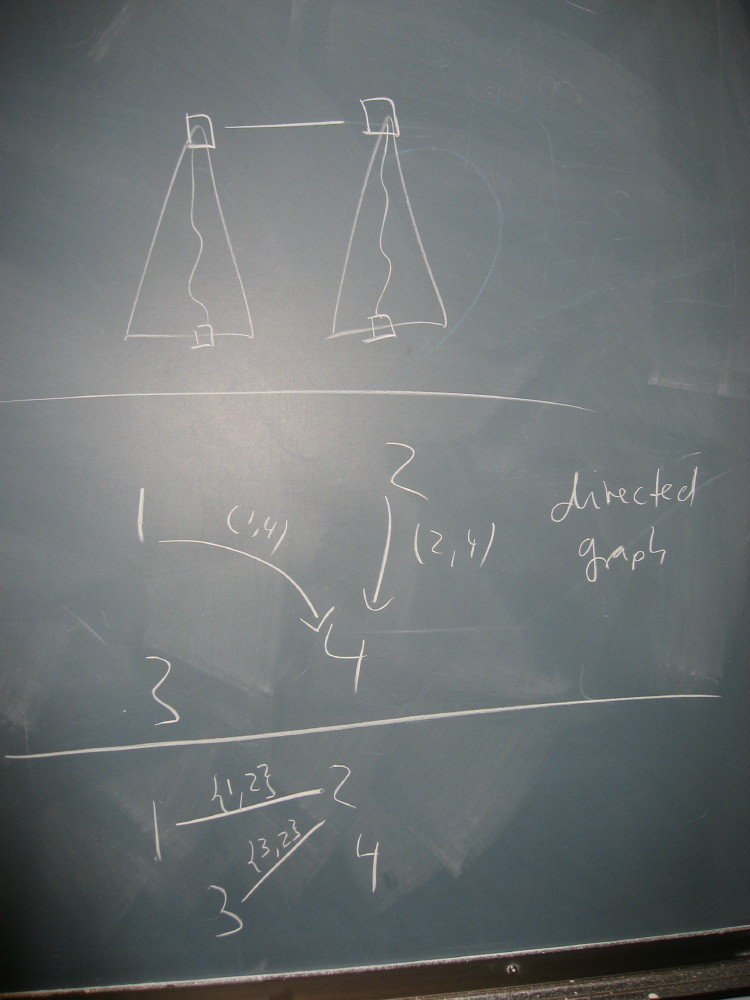 2
1 (1,4) (2,4) directed
graph
4
3
{1,2} 2
1
{3,2} 4
3